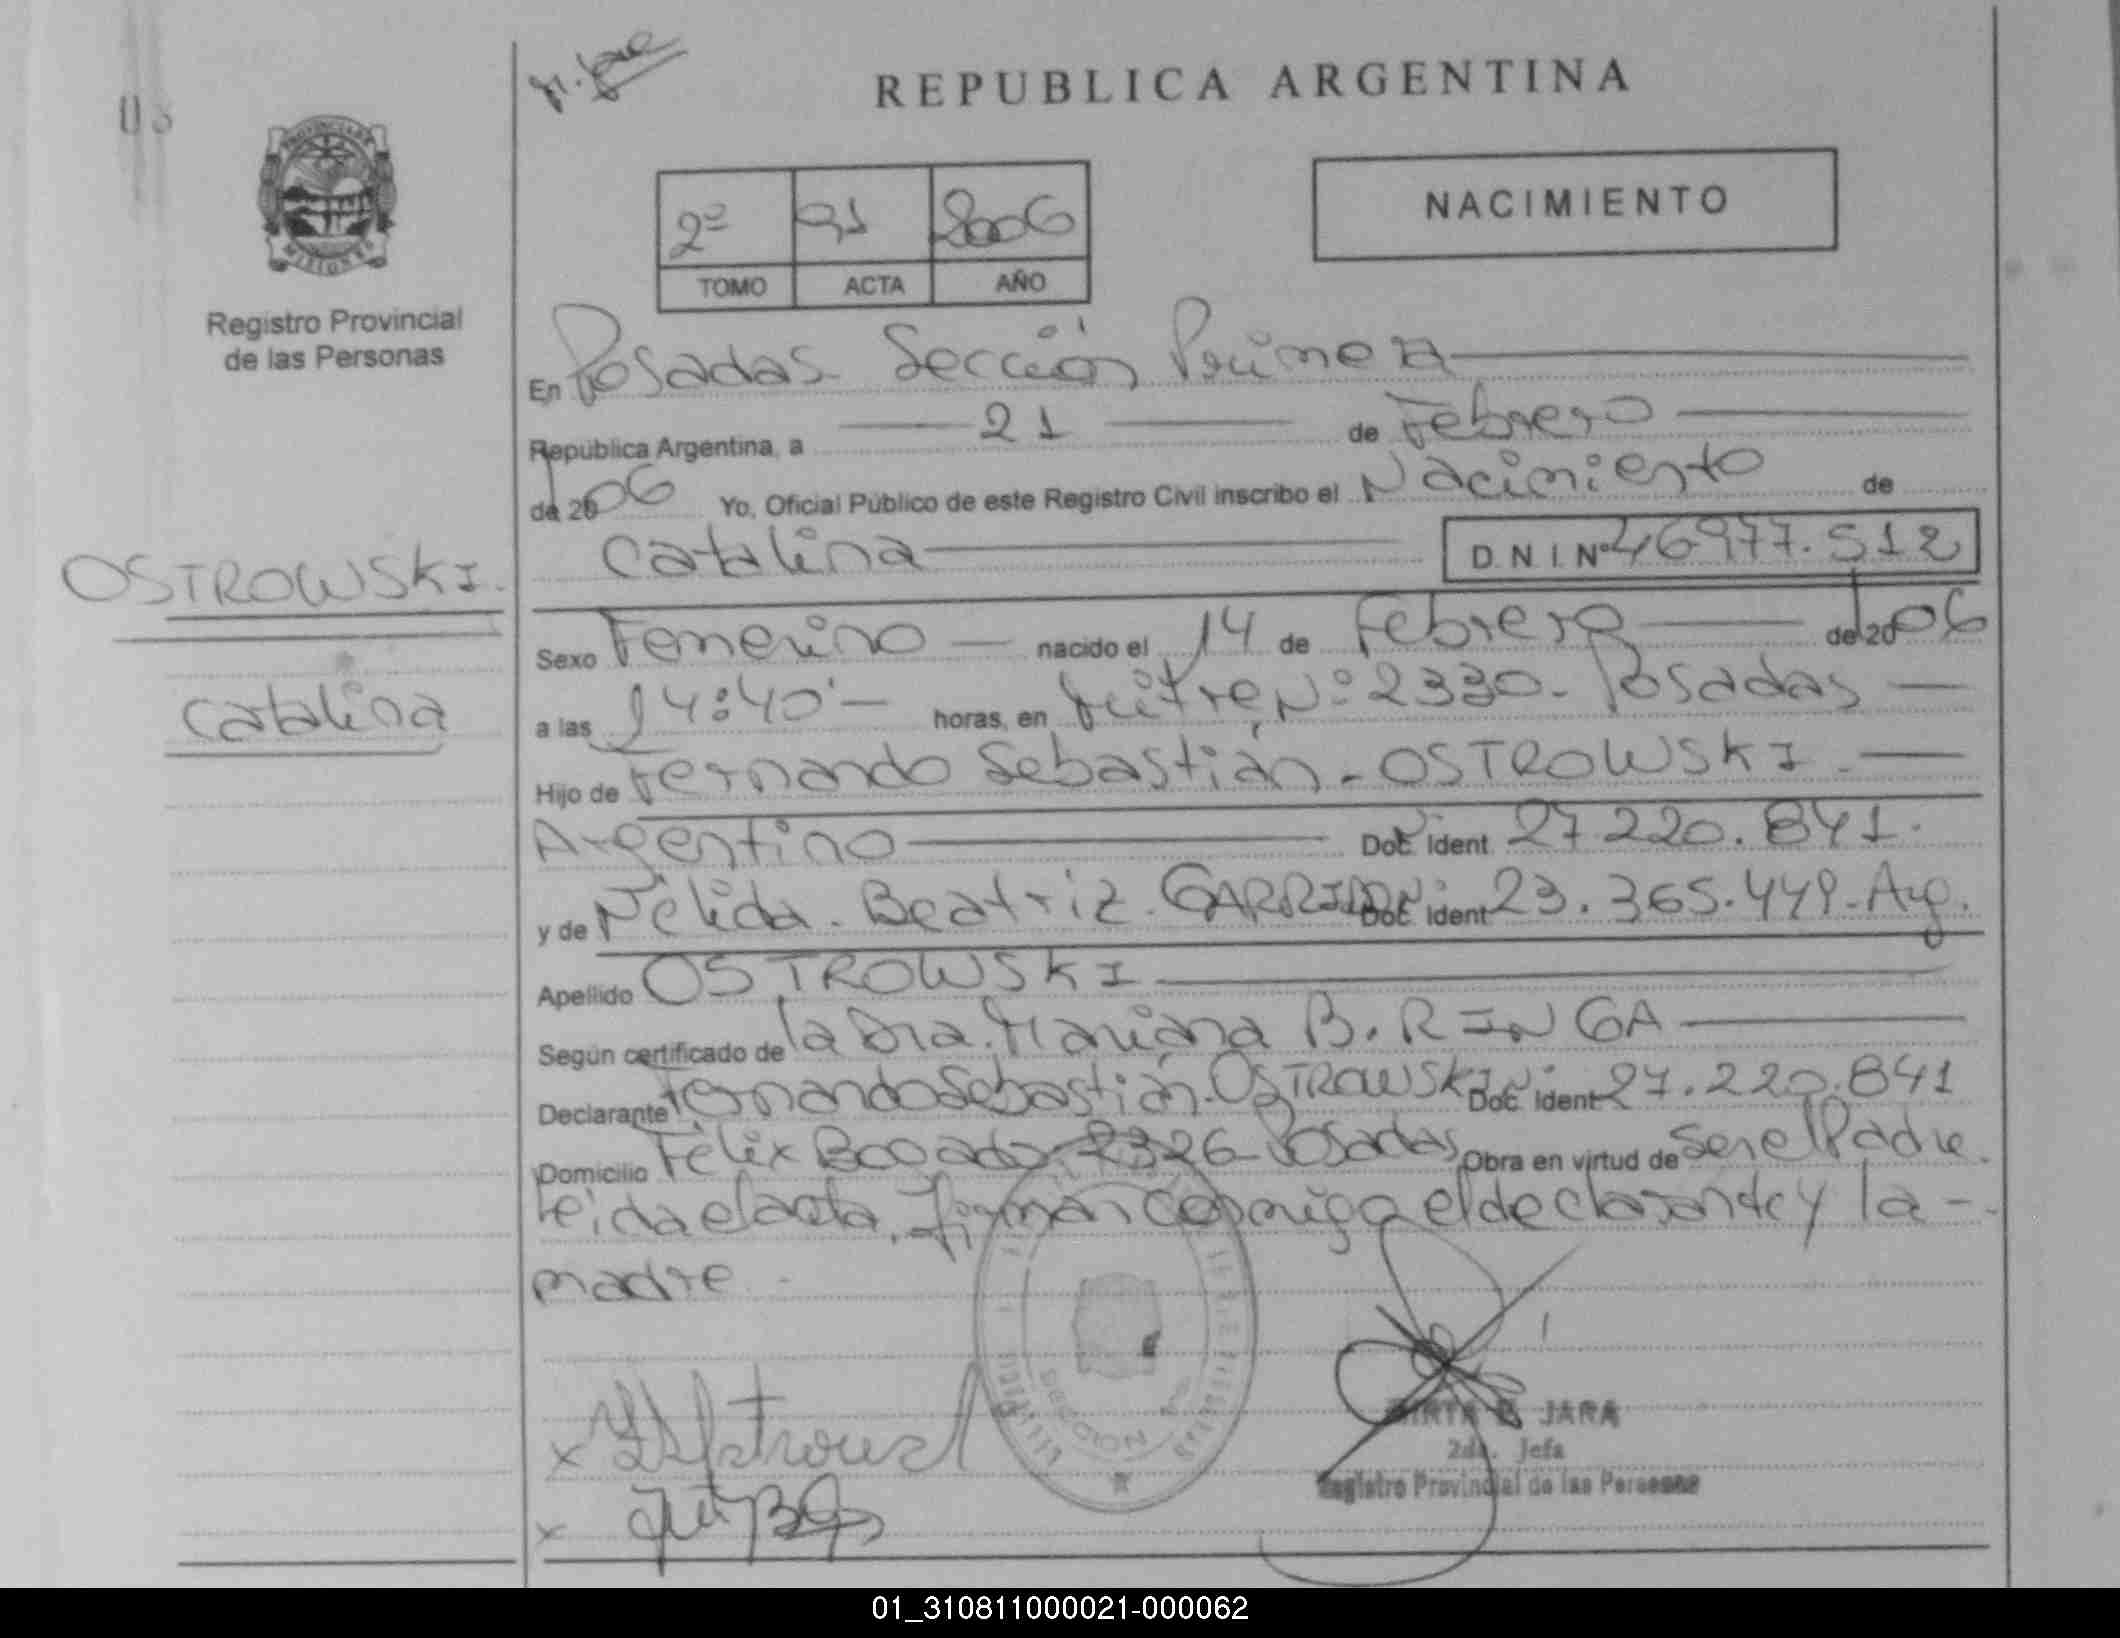 REPUBLICA ARGENTINA
03
PROVINCIA DE
MISIONES
Registro Provincial
de las Personas
2º 91 2006
TOMO ACTA AÑO
NACIMIENTO
En Posadas Sección Primera
República Argentina, a 21 de Febrero
de 2006 Yo, Oficial Público de este Registro Civil inscribo el Nacimiento de
Catalina D.N.I. Nº 46977.512
OSTROWSKI.
Catalina
Sexo Femenino nacido el 14 de Febrero de 2006
a las 14:40'- horas, en Mitre Nº: 2330- Posadas
Hijo de Fernando Sebastián - OSTROWSKI
Argentino Doc. Ident. 27.220.841.
y de Nélida. Beatriz. GARRIDO Doc. Ident 23.365.449-Arg.
Apellido OSTROWSKI
Según certificado de la Dra. Mariana B. RINGA
Declarante Fernando Sebastián. OSTROWSKI Doc. Ident 27.220.841
Domicilio Félix Bogado 2326 Posadas Obra en virtud de Ser el Padre.
Leida el acta, firman conmigo el declarante y la -
madre.
MIRTA JARA
2da. Jefa
Registro Provincial de las Personas
01_310811000021-000062